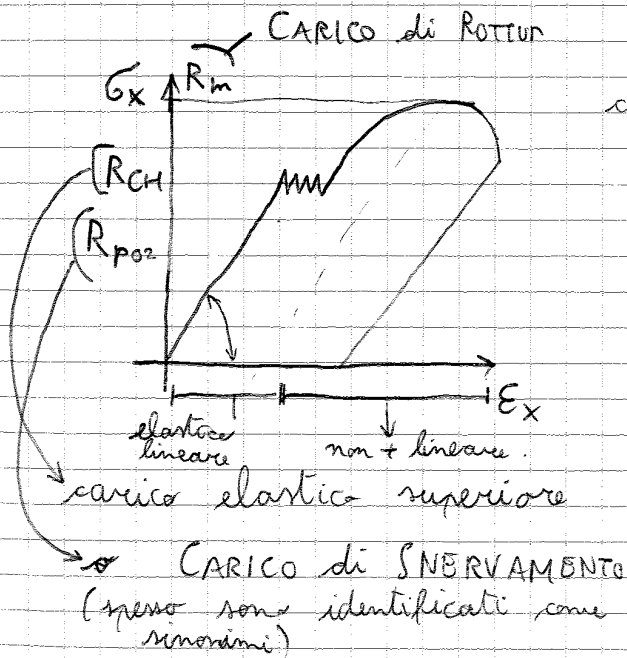 CARICO di ROTTUR
σx Rm
RCH
Rp02
εx
elastico
lineare
non + lineare.
carico elastico superiore
CARICO di SNERVAMENTO
(spesso sono identificati come
sinonimi)